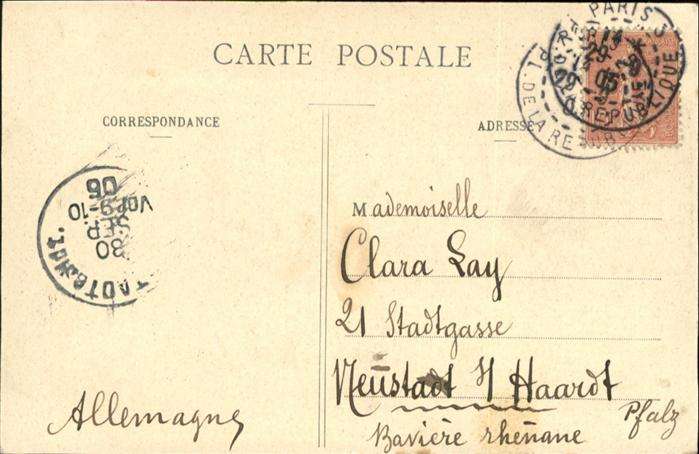 CARTE POSTALE
CORRESPONDANCE
ADRESSE
PARIS
PL. DE LA REPUBLIQUE
Mademoiselle
Clara Lay
21 Stadtgasse
Neustadt i/ Haardt
Pfalz
Bavière rhénane
Allemagne
30
SEP.
Vor. 9-10
06